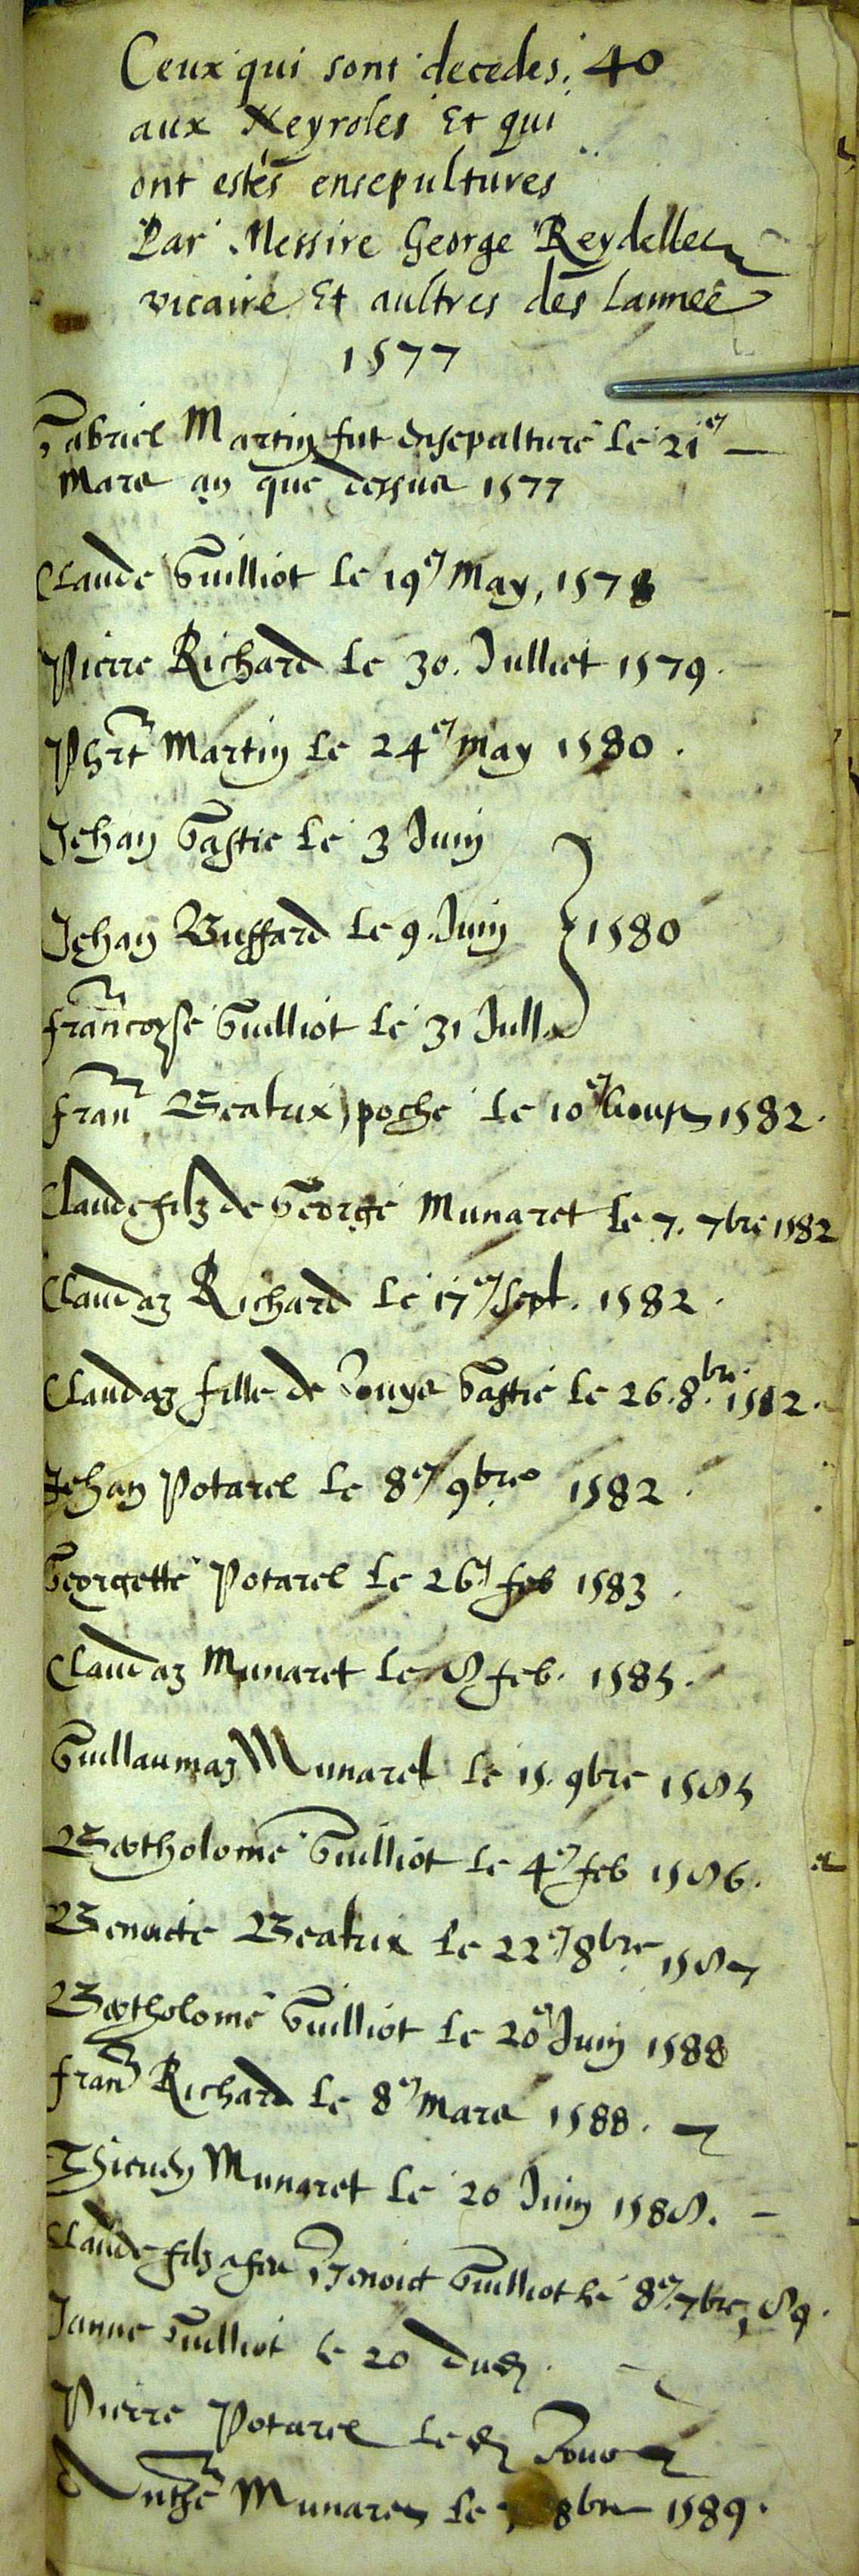 Ceux qui sont decedes. 40
aux Neyroles Et qui
ont estés ensepultures
Par Messire George Reydellet
vicaire Et aultres des Lannee
1577
Gabriel Martin fut ensepulturé le 21e
Mars an que dessus 1577
Claude Guilliot le 19e May, 1578
Pierre Richard le 30. Julliet 1579.
Phrt Martin le 24e may 1580.
Jehan Gastie le 3 Juin
Jehan Buffard le 9. Juin } 1580
francoyse Guilliot le 31 Jull
fran Beatrix poche le 10e 1582.
Claude filz de George Munaret le 7. 7bre 1582
Claudaz Richard le 17e Sept. 1582.
Claudaz fille de Gastie le 26. 8bre 1582.
Jehan Potarel le 8e 9bre 1582.
Georgette Potarel le 26e feb 1583.
Claudaz Munaret le 8 feb. 1585.
Guillaumaz Munaret le 15. 9bre 1585
Bartholomé Guilliot le 4e feb 1586.
Benoicte Beatrix le 22e 8bre 1587
Bartholomé Guilliot le 20e Juin 1588
fran Richard le 8e mars 1588.
Munaret le 20 Juin 1588.
Claude filz a feu Benoict Guilliot le 8e. 7bre 89.
Janne Guilliot le 20 dud.
Pierre Potarel le d Jour
Anthe Munaret le 8bre 1589.